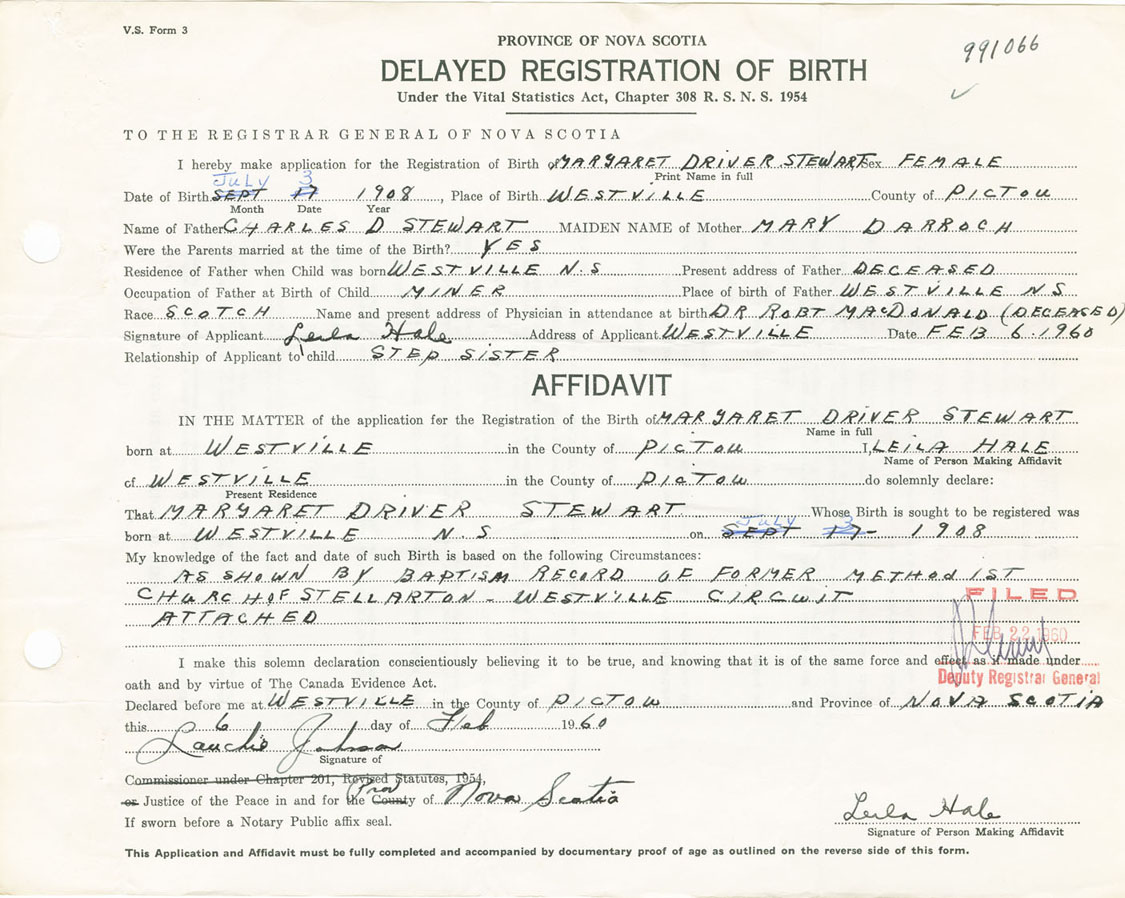 V.S. Form 3
991066
PROVINCE OF NOVA SCOTIA
DELAYED REGISTRATION OF BIRTH
Under the Vital Statistics Act, Chapter 308 R. S. N. S. 1954
TO THE REGISTRAR GENERAL OF NOVA SCOTIA
I hereby make application for the Registration of Birth of MARGARET DRIVER STEWART Sex FEMALE
Print Name in full
July 3
Date of Birth SEPT 17 1908, Place of Birth WESTVILLE County of PICTOU
Month Date Year
Name of Father CHARLES D STEWART MAIDEN NAME of Mother MARY DARROCH
Were the Parents married at the time of the Birth? YES
Residence of Father when Child was born WESTVILLE N.S Present address of Father DECEASED
Occupation of Father at Birth of Child MINER Place of birth of Father WESTVILLE N S
Race SCOTCH Name and present address of Physician in attendance at birth DR ROBT MACDONALD (DECEASED)
Signature of Applicant Leila Hale Address of Applicant WESTVILLE Date FEB 6. 1960
Relationship of Applicant to child STEP SISTER
AFFIDAVIT
IN THE MATTER of the application for the Registration of the Birth of MARGARET DRIVER STEWART
Name in full
born at WESTVILLE in the County of PICTOU I, LEILA HALE
Name of Person Making Affidavit
of WESTVILLE in the County of PICTOU do solemnly declare:
Present Residence
That MARGARET DRIVER STEWART Whose Birth is sought to be registered was
July 3
born at WESTVILLE N.S on SEPT 17- 1908
My knowledge of the fact and date of such Birth is based on the following Circumstances:
AS SHOWN BY BAPTISM RECORD OF FORMER METHODIST
CHURCH OF STELLARTON - WESTVILLE CIRCUIT
ATTACHED
FILED
FEB 22 1960
I make this solemn declaration conscientiously believing it to be true, and knowing that it is of the same force and effect as if made under
Deputy Registrar General
oath and by virtue of The Canada Evidence Act.
Declared before me at WESTVILLE in the County of PICTOU and Province of NOVA SCOTIA
this 6 day of Feb 1960
Lauchie Johnson
Signature of
Commissioner under Chapter 201, Revised Statutes, 1954,
Prov
or Justice of the Peace in and for the County of Nova Scotia
If sworn before a Notary Public affix seal.
Leila Hale
Signature of Person Making Affidavit
This Application and Affidavit must be fully completed and accompanied by documentary proof of age as outlined on the reverse side of this form.